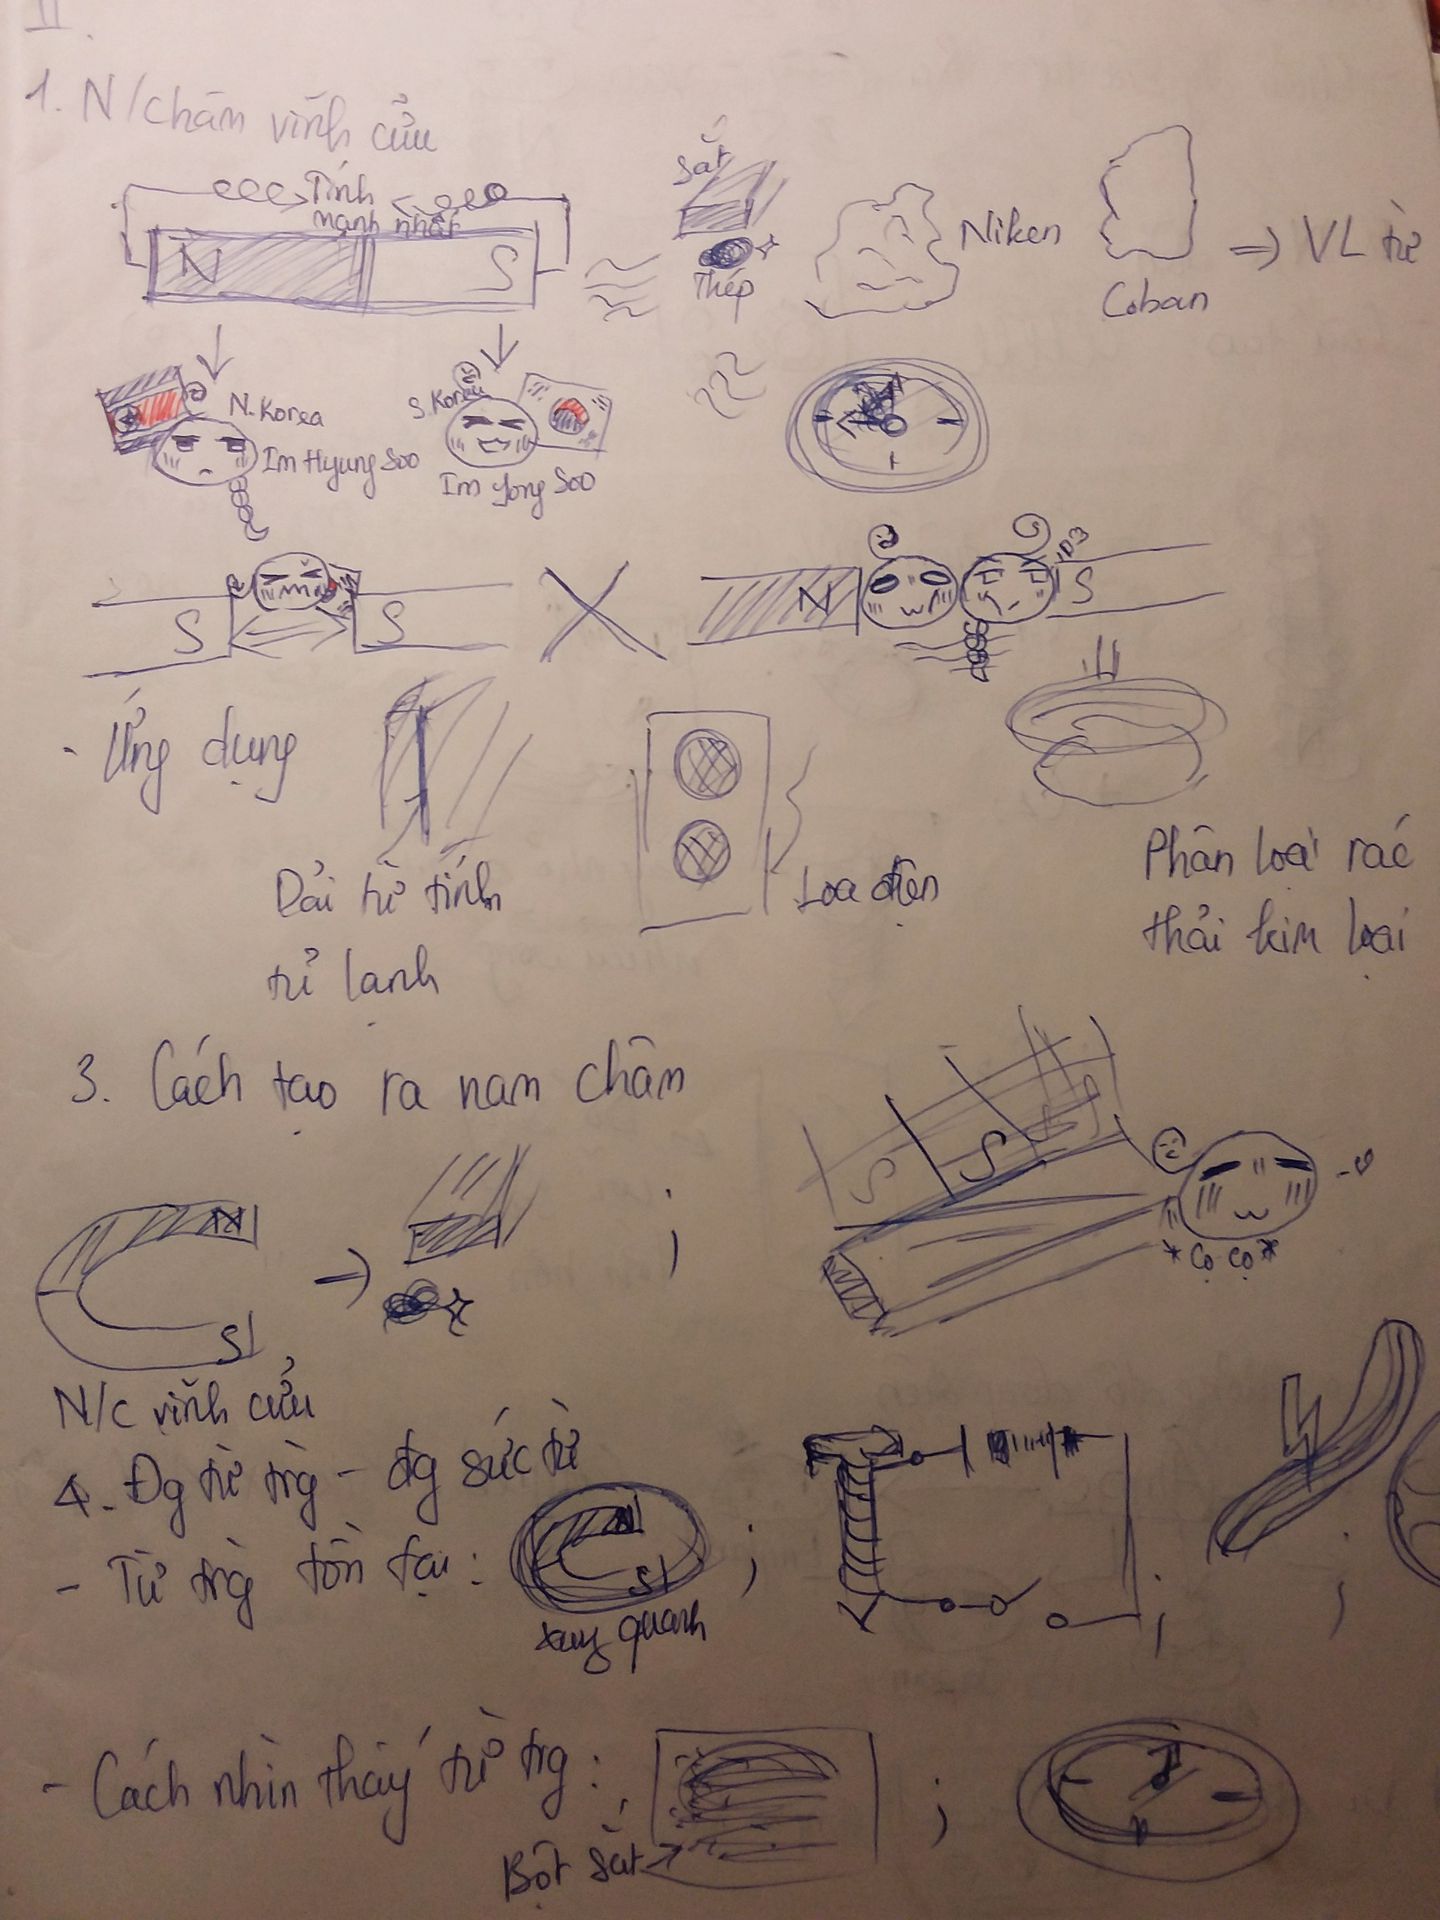 II.
1. N/châm vĩnh cửu
Tính
mạnh nhất
N S
Sắt
Thép
Niken
Coban
=> VL từ
N. Korea
Im Hyung Soo
S. Korea
Im Yong Soo
S S
N S
- Ứng dụng
Dải từ tính
tủ lạnh
Loa điện
Phân loại rác
thải kim loại
3. Cách tạo ra nam châm
N
S
N/c vĩnh cửu
S S
*cọ cọ*
4. Đg từ trg - đg sức từ
- Từ trg tồn tại:
N
S
xung quanh
- Cách nhìn thấy từ trg:
Bột sắt